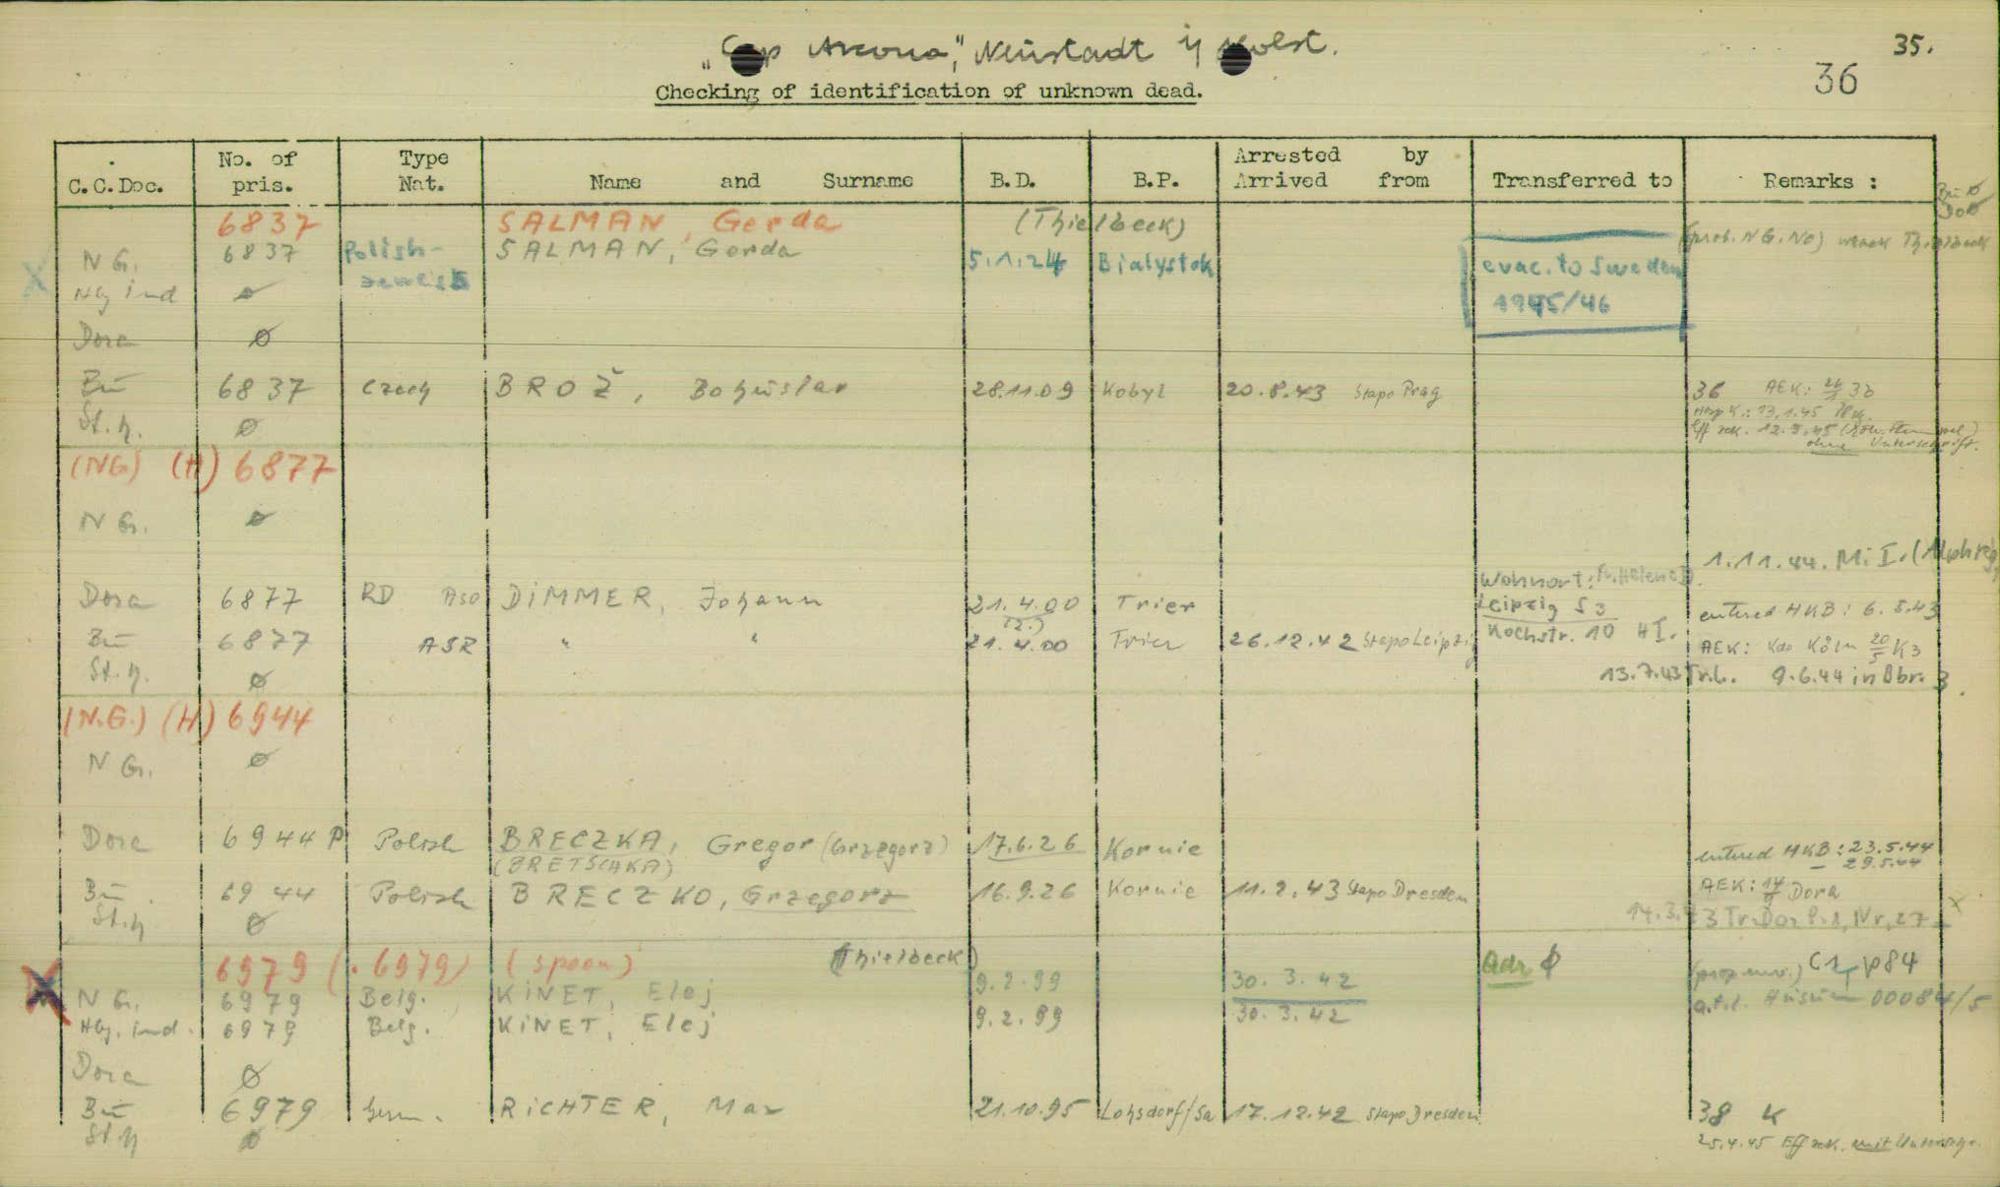 "Cap Arcona", Neustadt i/ Holst. 35.
36
Checking of identification of unknown dead.
C.C.Doc. No. of pris. Type Nat. Name and Surname B.D. B.P. Arrested by Arrived from Transferred to Remarks :
6837 SALMAN, Gerda (Thielbeck)
N G. 6837 Polish- SALMAN, Gerda 5.1.24 Bialystok evac. to Sweden 1945/46 (prob. NG. No) wreck Thielbeck
Ng ind ø
Dora ø
Bu 6837 Czech BROŽ, Bohuslav 28.11.09 Kobyl 20.8.43 Stapo Prag 36 AEK:
13.1.45
St.h. ø 12.3.45 ohne Unterschrift.
(NG) (H) 6877
N G. ø
1.11.44. M. I.
Wohnort: Fr. Helene D.
Dora 6877 RD Aso DIMMER, Johann 21.4.00 Trier Leipzig S3 entered HKB: 6.5.43
(2.)
Bu 6877 ASR " " 21.4.00 Trier 26.12.42 Stapo Leipzig Kochstr. 10 H I. AEK: Kdo Köln 20/5 K3
St.h. ø 13.7.43 Tr.L. 9.6.44 in Bbr. 3.
(N.G.) (H) 6944
N G. ø
Dora 6944 P Polish BRECZKA, Gregor (Grzegorz) 17.6.26 Kornie entered HKB: 23.5.44
(BRETSCHKA) – 29.5.44
Bu. 6944 Polish BRECZKO, Grzegorz 16.9.26 Kornie 11.2.43 Stapo Dresden AEK: Dora
St.h ø 14.3. Tr. Dor Nr. 27
6979 (. 6979) (spoon) (Thielbeck)
N G. 6979 Belg. KINET, Eloj 9.2.99 30.3.42 Adr ø C1 p84
Hg. ind. 6979 Belg. KINET, Eloj 9.2.99 30.3.42 00084/5
Dora ø
Bu 6979 Germ. RICHTER, Max 21.10.95 Lohsdorf/Sa 17.12.42 Stapo Dresden 38 K
St.h ø 25.4.45 Eff. mit